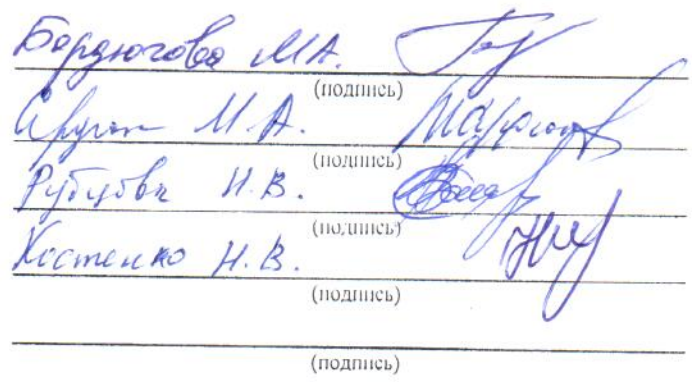 Бордюгова М.А.
(подпись)
М.А.
(подпись)
Рубцова Н.В.
(подпись)
Костенко Н.В.
(подпись)
(подпись)